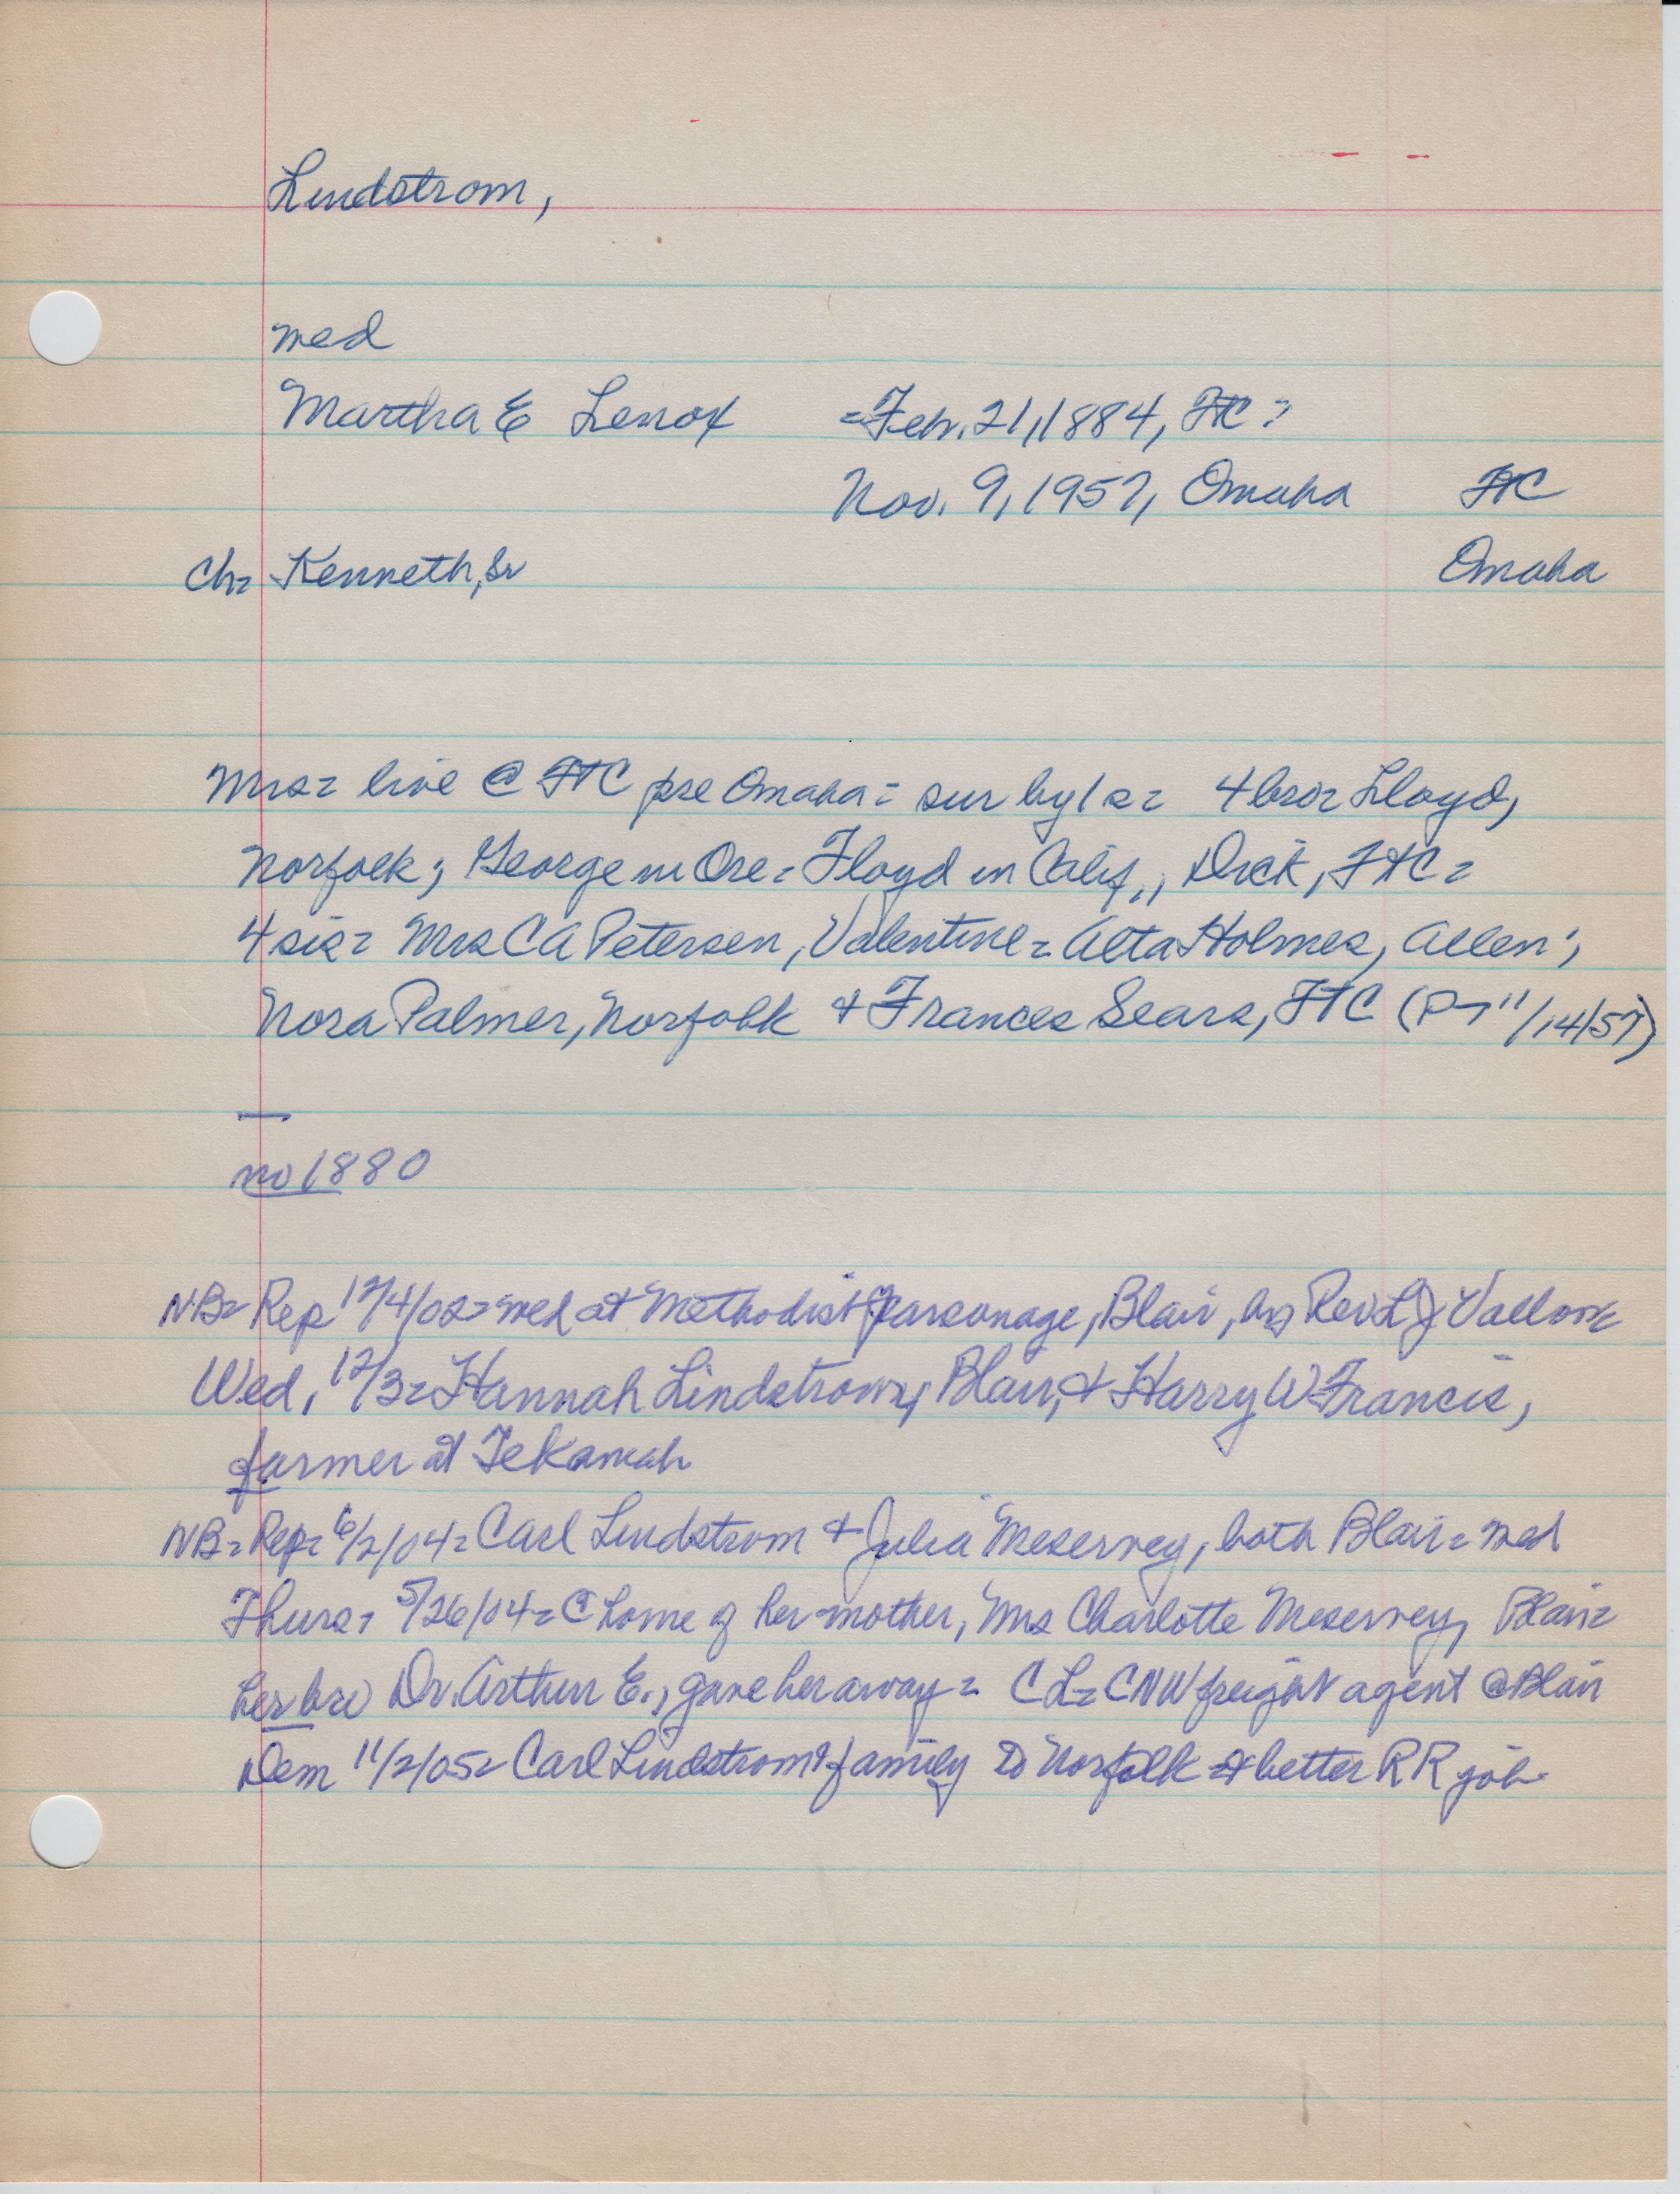 Lindstrom,
med
Martha E Lenox =Feb. 21, 1884, FtC =
Nov. 9, 1957, Omaha FtC
Ch= Kenneth, Sr Omaha
Mrs= live @ FtC pre Omaha= sur by 1 s= 4 bro= Lloyd,
Norfolk; George in Ore= Floyd in Calif,, Dick, FtC=
4 sis= Mrs CA Petersen, Valentine= Alta Holmes, Allen;
Nora Palmer, Norfolk & Frances Sears, FtC (P-T 11/14/57)
no 1880
NB= Rep 12/4/02= med at Methodist parsonage, Blair, by Rev L J
Wed, 12/3= Hannah Lindstrom, Blair, & Harry W Francis,
farmer at Tekamah
NB= Rep= 6/2/04= Carl Lindstrom & Julia Meservey, both Blair= med
Thurs= 5/26/04= @ home of her mother, Mrs Charlotte Meservey, Blair=
her bro Dr. Arthur E., gave her away= CL= CNW freight agent @ Blair
Dem 11/2/05= Carl Lindstrom & family to Norfolk better RR job